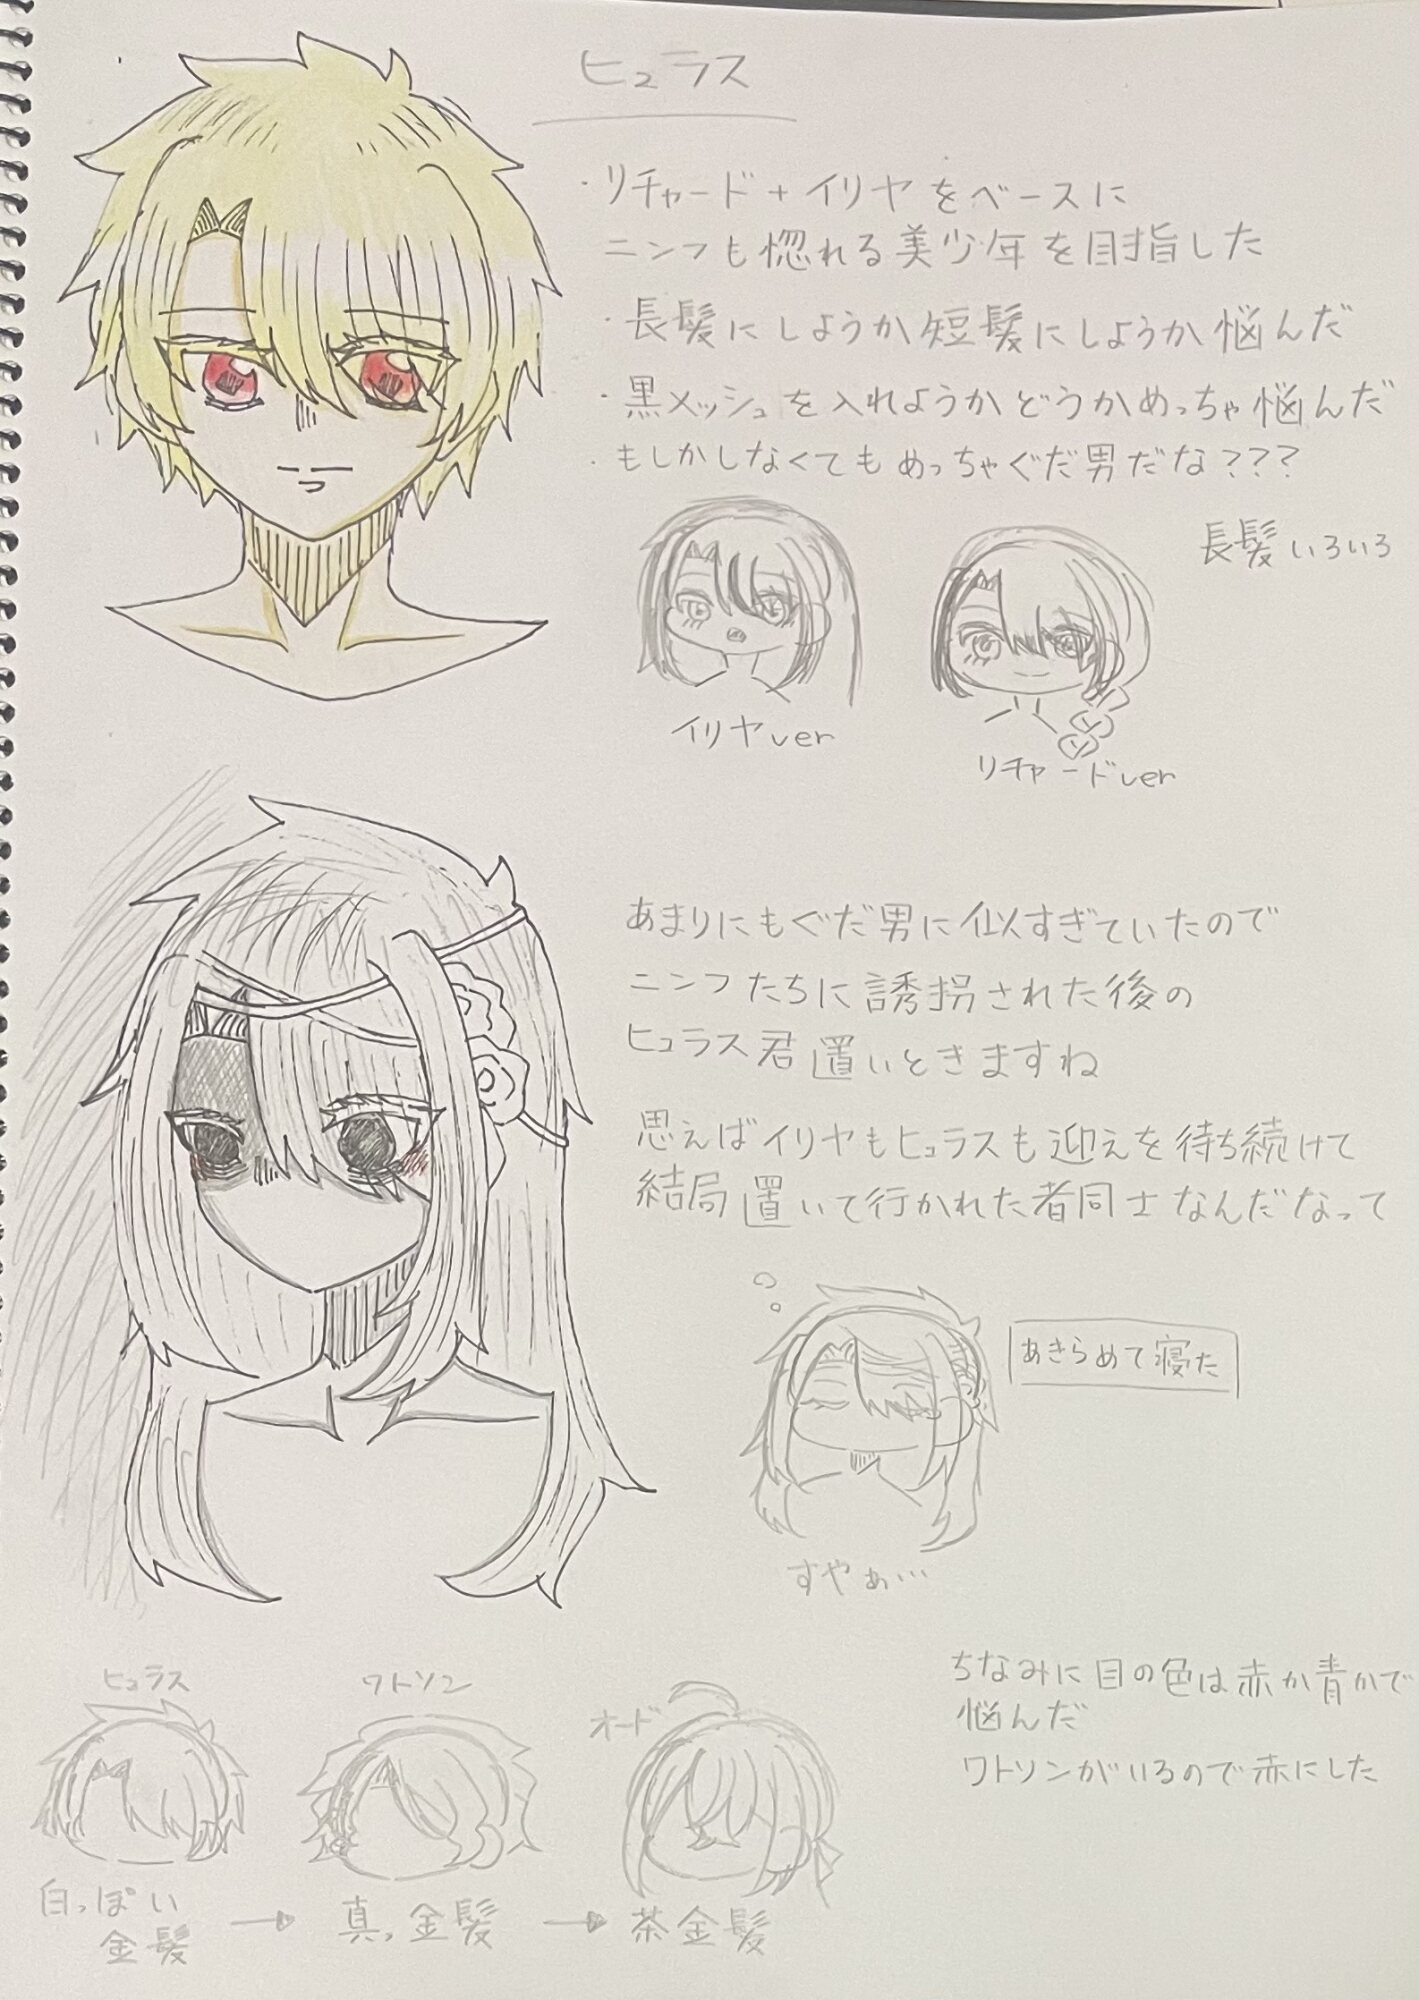 ヒュラス
・リチャード+イリヤをベースに
ニンフも惚れる美少年を目指した
・長髪にしようか短髪にしようか悩んだ
・黒メッシュを入れようかどうかめっちゃ悩んだ
・もしかしなくてもめっちゃぐだ男だな???
長髪いろいろ
イリヤver
リチャードver
あまりにもぐだ男に似すぎていたので
ニンフたちに誘拐された後の
ヒュラス君置いときますね
思えばイリヤもヒュラスも迎えを待ち続けて
結局置いて行かれた者同士なんだなって
あきらめて寝た
すやぁ…
ヒュラス
ワトソン
オード
白っぽい
金髪
→
真っ金髪
→
茶金髪
ちなみに目の色は赤か青かで
悩んだ
ワトソンがいるので赤にした